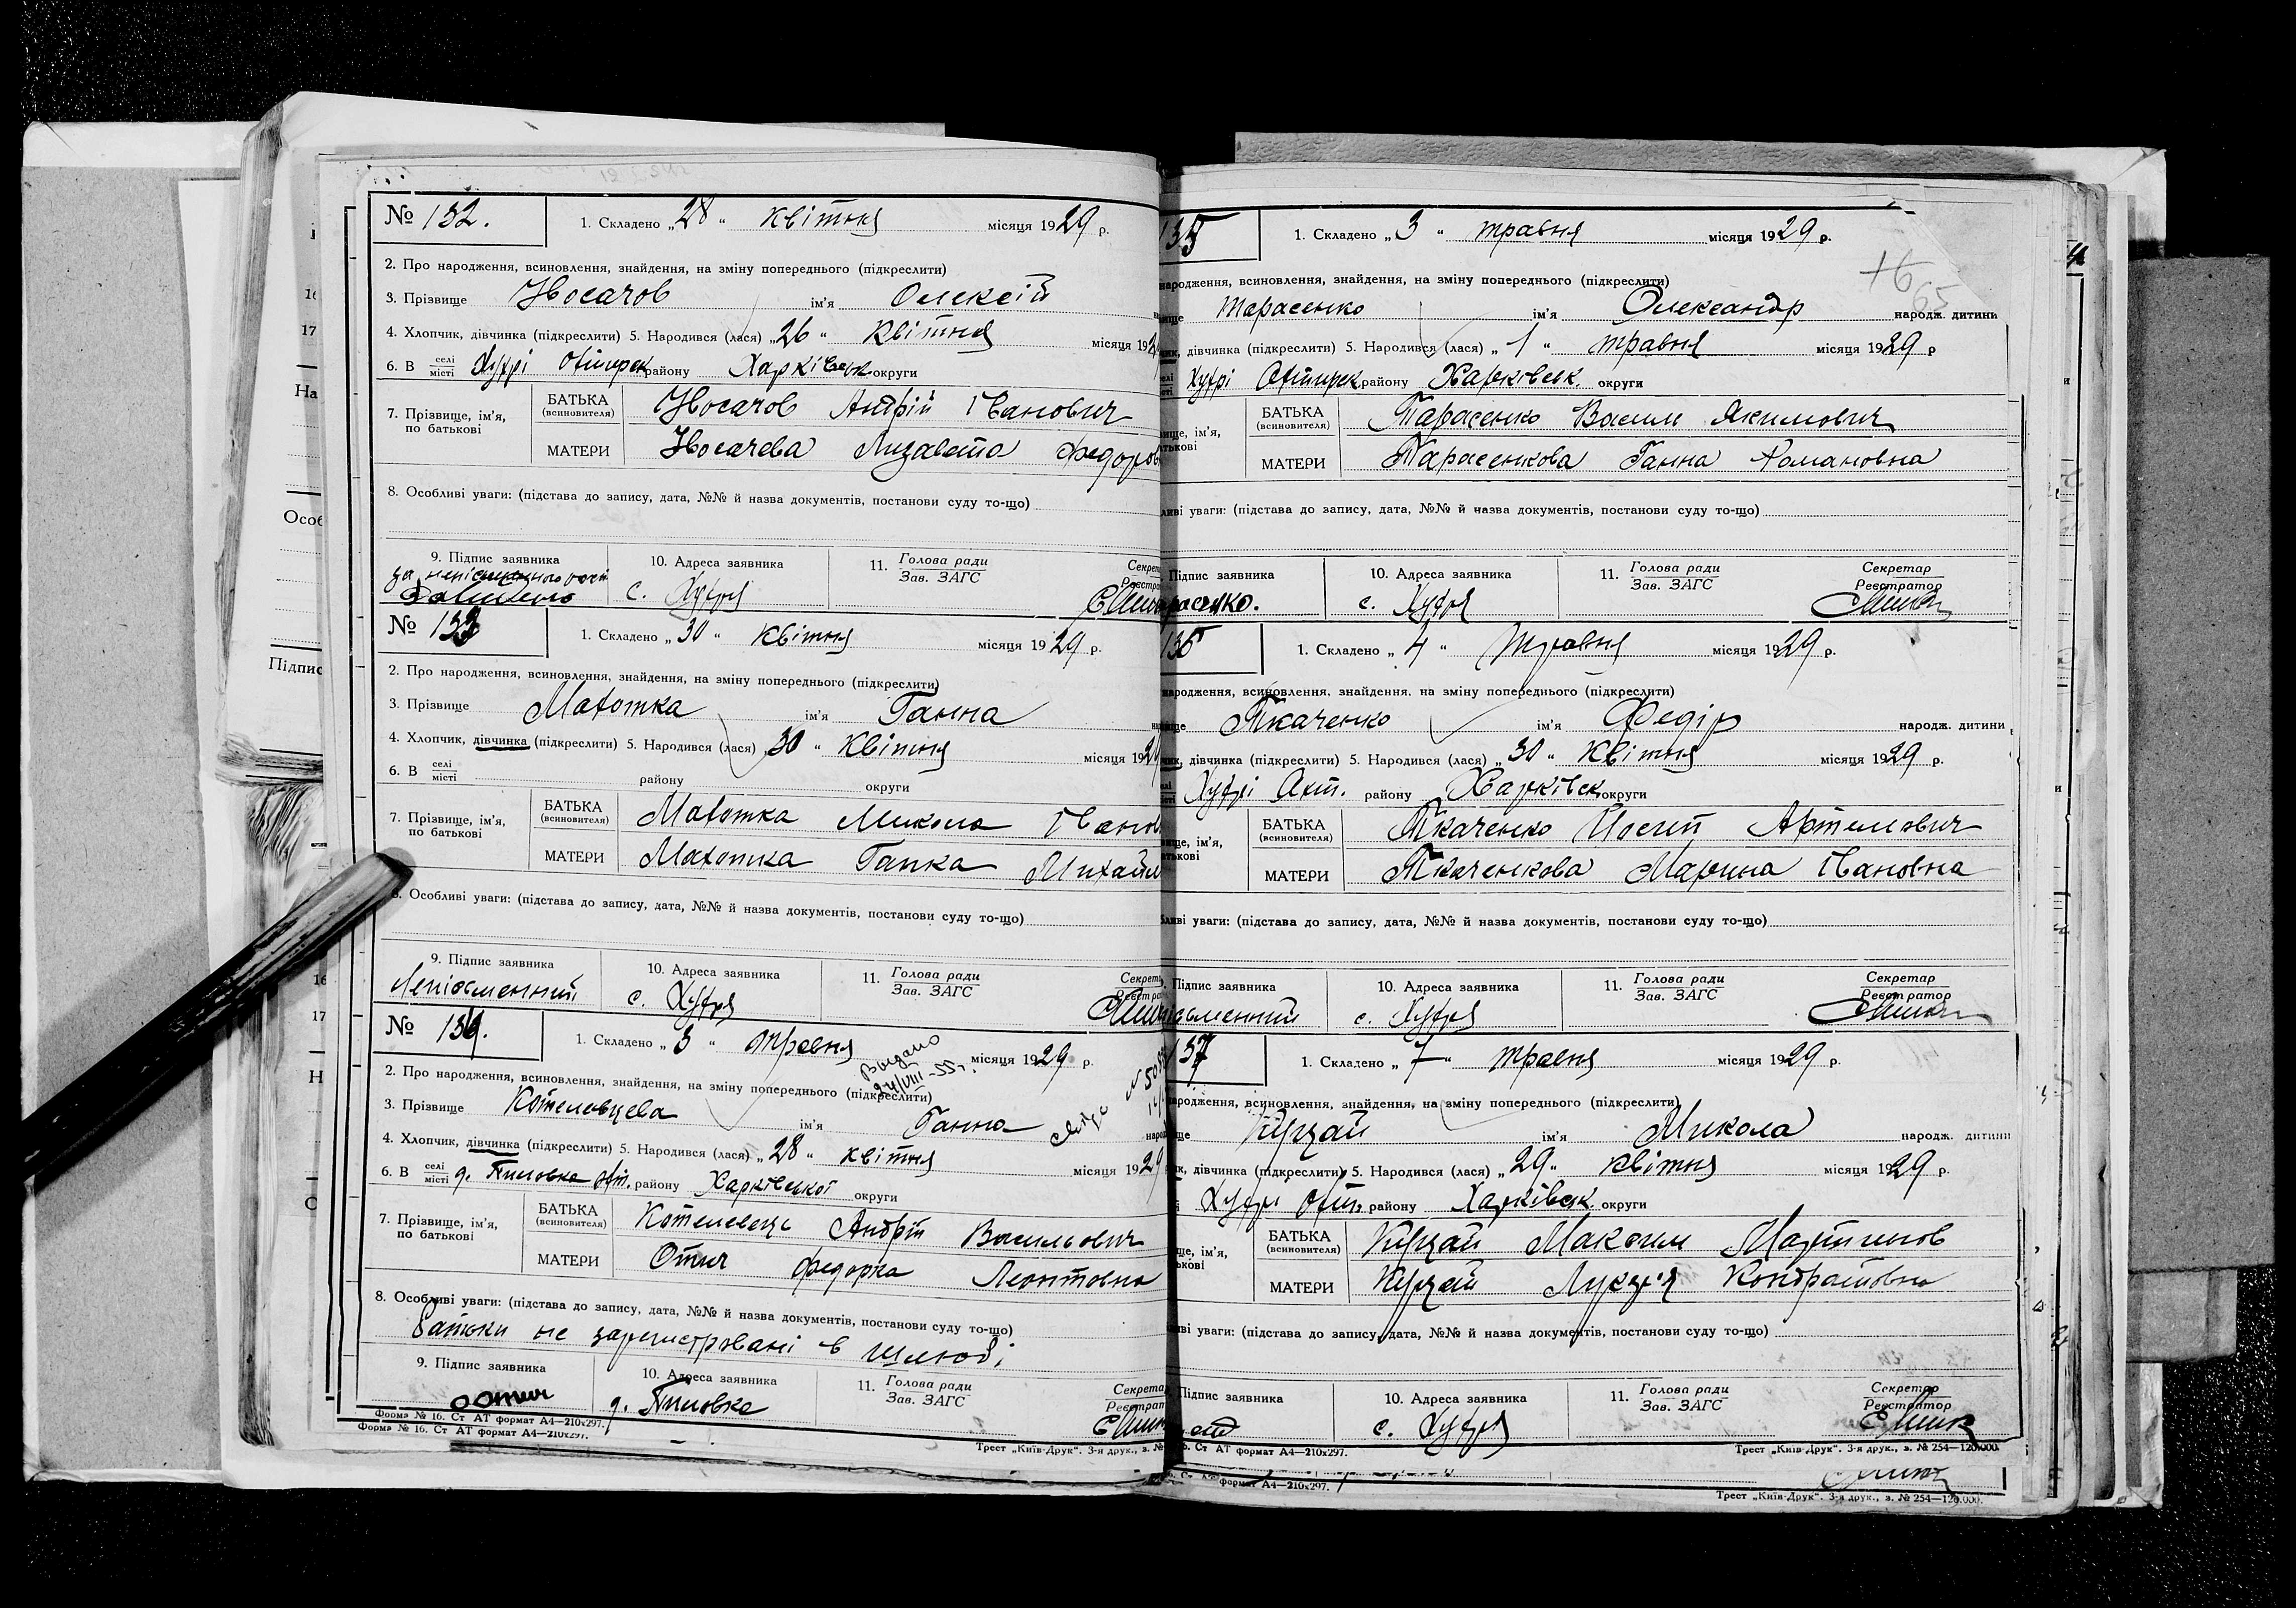 № 132.
1. Складено „28“ квітня місяця 1929 р.
2. Про народження, всиновлення, знайдення, на зміну попереднього (підкреслити)
3. Прізвище Носачов ім'я Олексій
4. Хлопчик, дівчинка (підкреслити) 5. Народився (лася) „26“ квітня місяця 192
6. В селі місті Хухрі Охтирськ району Харківськ округи
7. Прізвище, ім'я, по батькові
БАТЬКА (всиновителя) Носачов Андрій Іванович
МАТЕРИ Носачева Лизавета Федоров
8. Особливі уваги: (підстава до запису, дата, №№ й назва документів, постанови суду то-що)
9. Підпис заявника
10. Адреса заявника
11. Голова ради Зав. ЗАГС
за неписьменного
с. Хухря
№ 133
1. Складено „30“ квітня місяця 1929 р.
2. Про народження, всиновлення, знайдення, на зміну попереднього (підкреслити)
3. Прізвище Махотка ім'я Ганна
4. Хлопчик, дівчинка (підкреслити) 5. Народився (лася) „30“ квітня місяця 192
6. В селі місті району округи
7. Прізвище, ім'я, по батькові
БАТЬКА (всиновителя) Махотка Микола Іванов
МАТЕРИ Махотка Гапка Михайл
8. Особливі уваги: (підстава до запису, дата, №№ й назва документів, постанови суду то-що)
9. Підпис заявника
10. Адреса заявника
11. Голова ради Зав. ЗАГС
Неписьменний
с. Хухря
№ 134.
1. Складено „3“ травня місяця 1929 р.
Видано
2. Про народження, всиновлення, знайдення, на зміну попереднього (підкреслити)
3. Прізвище Котелевцева ім'я Ганна
4. Хлопчик, дівчинка (підкреслити) 5. Народився (лася) „28“ квітня місяця 1929
6. В селі місті д. Пиловка Охт. району Харківської округи
7. Прізвище, ім'я, по батькові
БАТЬКА (всиновителя) Котелевець Андрій Васильович
МАТЕРИ Отич Федорка Леонтовна
8. Особливі уваги: (підстава до запису, дата, №№ й назва документів, постанови суду то-що)
батьки не зареєстровані в шлюбі
9. Підпис заявника
10. Адреса заявника
11. Голова ради Зав. ЗАГС
Отич
д. Пиловка
Форма № 16. Ст АТ формат А4—210х297.
Форма № 16. Ст АТ формат А4—210х297.
Трест „Київ-Друк“. 3-я друк., з. №
135
1. Складено „3“ травня місяця 1929 р.
народження, всиновлення, знайдення, на зміну попереднього (підкреслити)
Тарасенко ім'я Олександр народж. дитини
дівчинка (підкреслити) 5. Народився (лася) „1“ травня місяця 1929 р
Хухрі Охтирськ району Харківськ. округи
БАТЬКА (всиновителя) Тарасенко Василь Якимович
МАТЕРИ Тарасенкова Ганна Романовна
уваги: (підстава до запису, дата, №№ й назва документів, постанови суду то-що)
Підпис заявника
10. Адреса заявника
11. Голова ради Зав. ЗАГС
Секретар Реєстратор
расенко.
с. Хухря
136
1. Складено „4“ травня місяця 1929 р.
народження, всиновлення, знайдення, на зміну попереднього (підкреслити)
Ткаченко ім'я Федір народж. дитини
дівчинка (підкреслити) 5. Народився (лася) „30“ квітня місяця 1929 р.
Хухрі Охт. району Харківськ округи
БАТЬКА (всиновителя) Ткаченко Йосип Артемович
МАТЕРИ Ткаченкова Марина Івановна
уваги: (підстава до запису, дата, №№ й назва документів, постанови суду то-що)
Підпис заявника
10. Адреса заявника
11. Голова ради Зав. ЗАГС
Секретар Реєстратор
сьменний
с. Хухря
137
1. Складено „7“ травня місяця 1929 р.
народження, всиновлення, знайдення, на зміну попереднього (підкреслити)
Куцай ім'я Микола народж. дитини
дівчинка (підкреслити) 5. Народився (лася) „29“ квітня місяця 1929 р.
Хухрі Охт. району Харківськ. округи
БАТЬКА (всиновителя) Куцай Максим Мартинов
МАТЕРИ Куцай Лукер'я Кондратовна
уваги: (підстава до запису, дата, №№ й назва документів, постанови суду то-що)
Підпис заявника
10. Адреса заявника
11. Голова ради Зав. ЗАГС
Секретар Реєстратор
с. Хухря
Ст АТ формат А4—210х297.
Трест „Київ-Друк“. 3-я друк., з. № 254—120.000.
формат А4—210х297.
Трест „Київ-Друк“. 3-я друк., з. № 254—120.000.